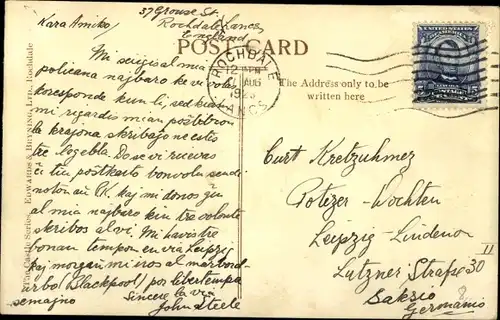 37 Grouse St.
Rochdale, Lancs,
England
Kara Amiko,
Mi sciigis al mia
policana najbaro ke vi volas
koresponde kun li, sed kiam
mi rigardis mian poŝtlibron
la krajona skribaĵo ne estis
tre legebla. Do se vi ricevas
ĉi tiu poŝtkarto bonvolu sendi
noton au P.K. kaj mi donos ĝin
al mia najbaro kiu tre volonte
skribos al vi. Mi havis tre
bonan tempon en via Leipzig
kaj morgaŭ mi iros al marbord-
urbo (Blackpool) por libertempa
semajno
Sincere la via
John Steele
POST CARD
The Address only to be
written here
The Castle Series. EDWARDS & BRYNING, LTD. Rochdale
ROCHDALE
12
AUG
1923
LANCS
UNITED STATES
5 5
Curt Kretzuhmez
Potizer-Wochten
Leipzig-Lindenon
Lutzner Straße 30
II
Saksio
Germanio